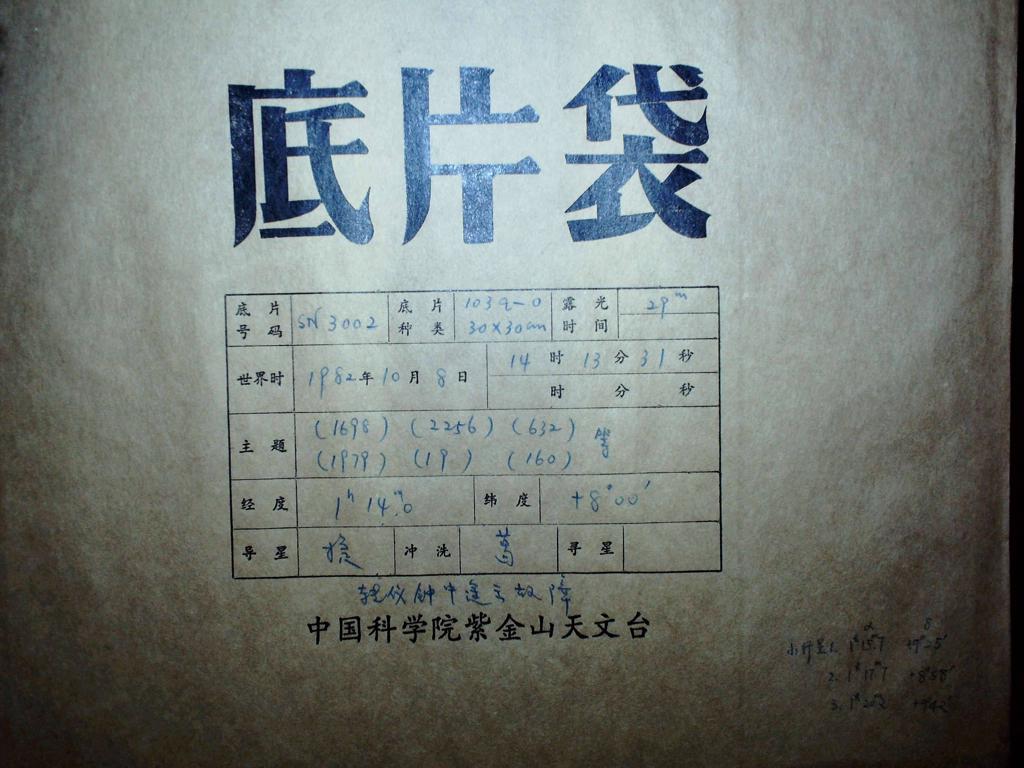 底片袋
底片号码 SN 3002 底片种类 103a-O 30×30cm 露光时间 29m
世界时 1982年10月8日 14时13分31秒
时 分 秒
主题 (1698) (2256) (632) 等
(1979) (19) (160)
经度 1h 14m.0 纬度 +8°00′
寻星 冲洗 葛 寻星
中国科学院紫金山天文台
α δ
小行星1. 1h15m7
2. 1h17m7 +8°58′
3.